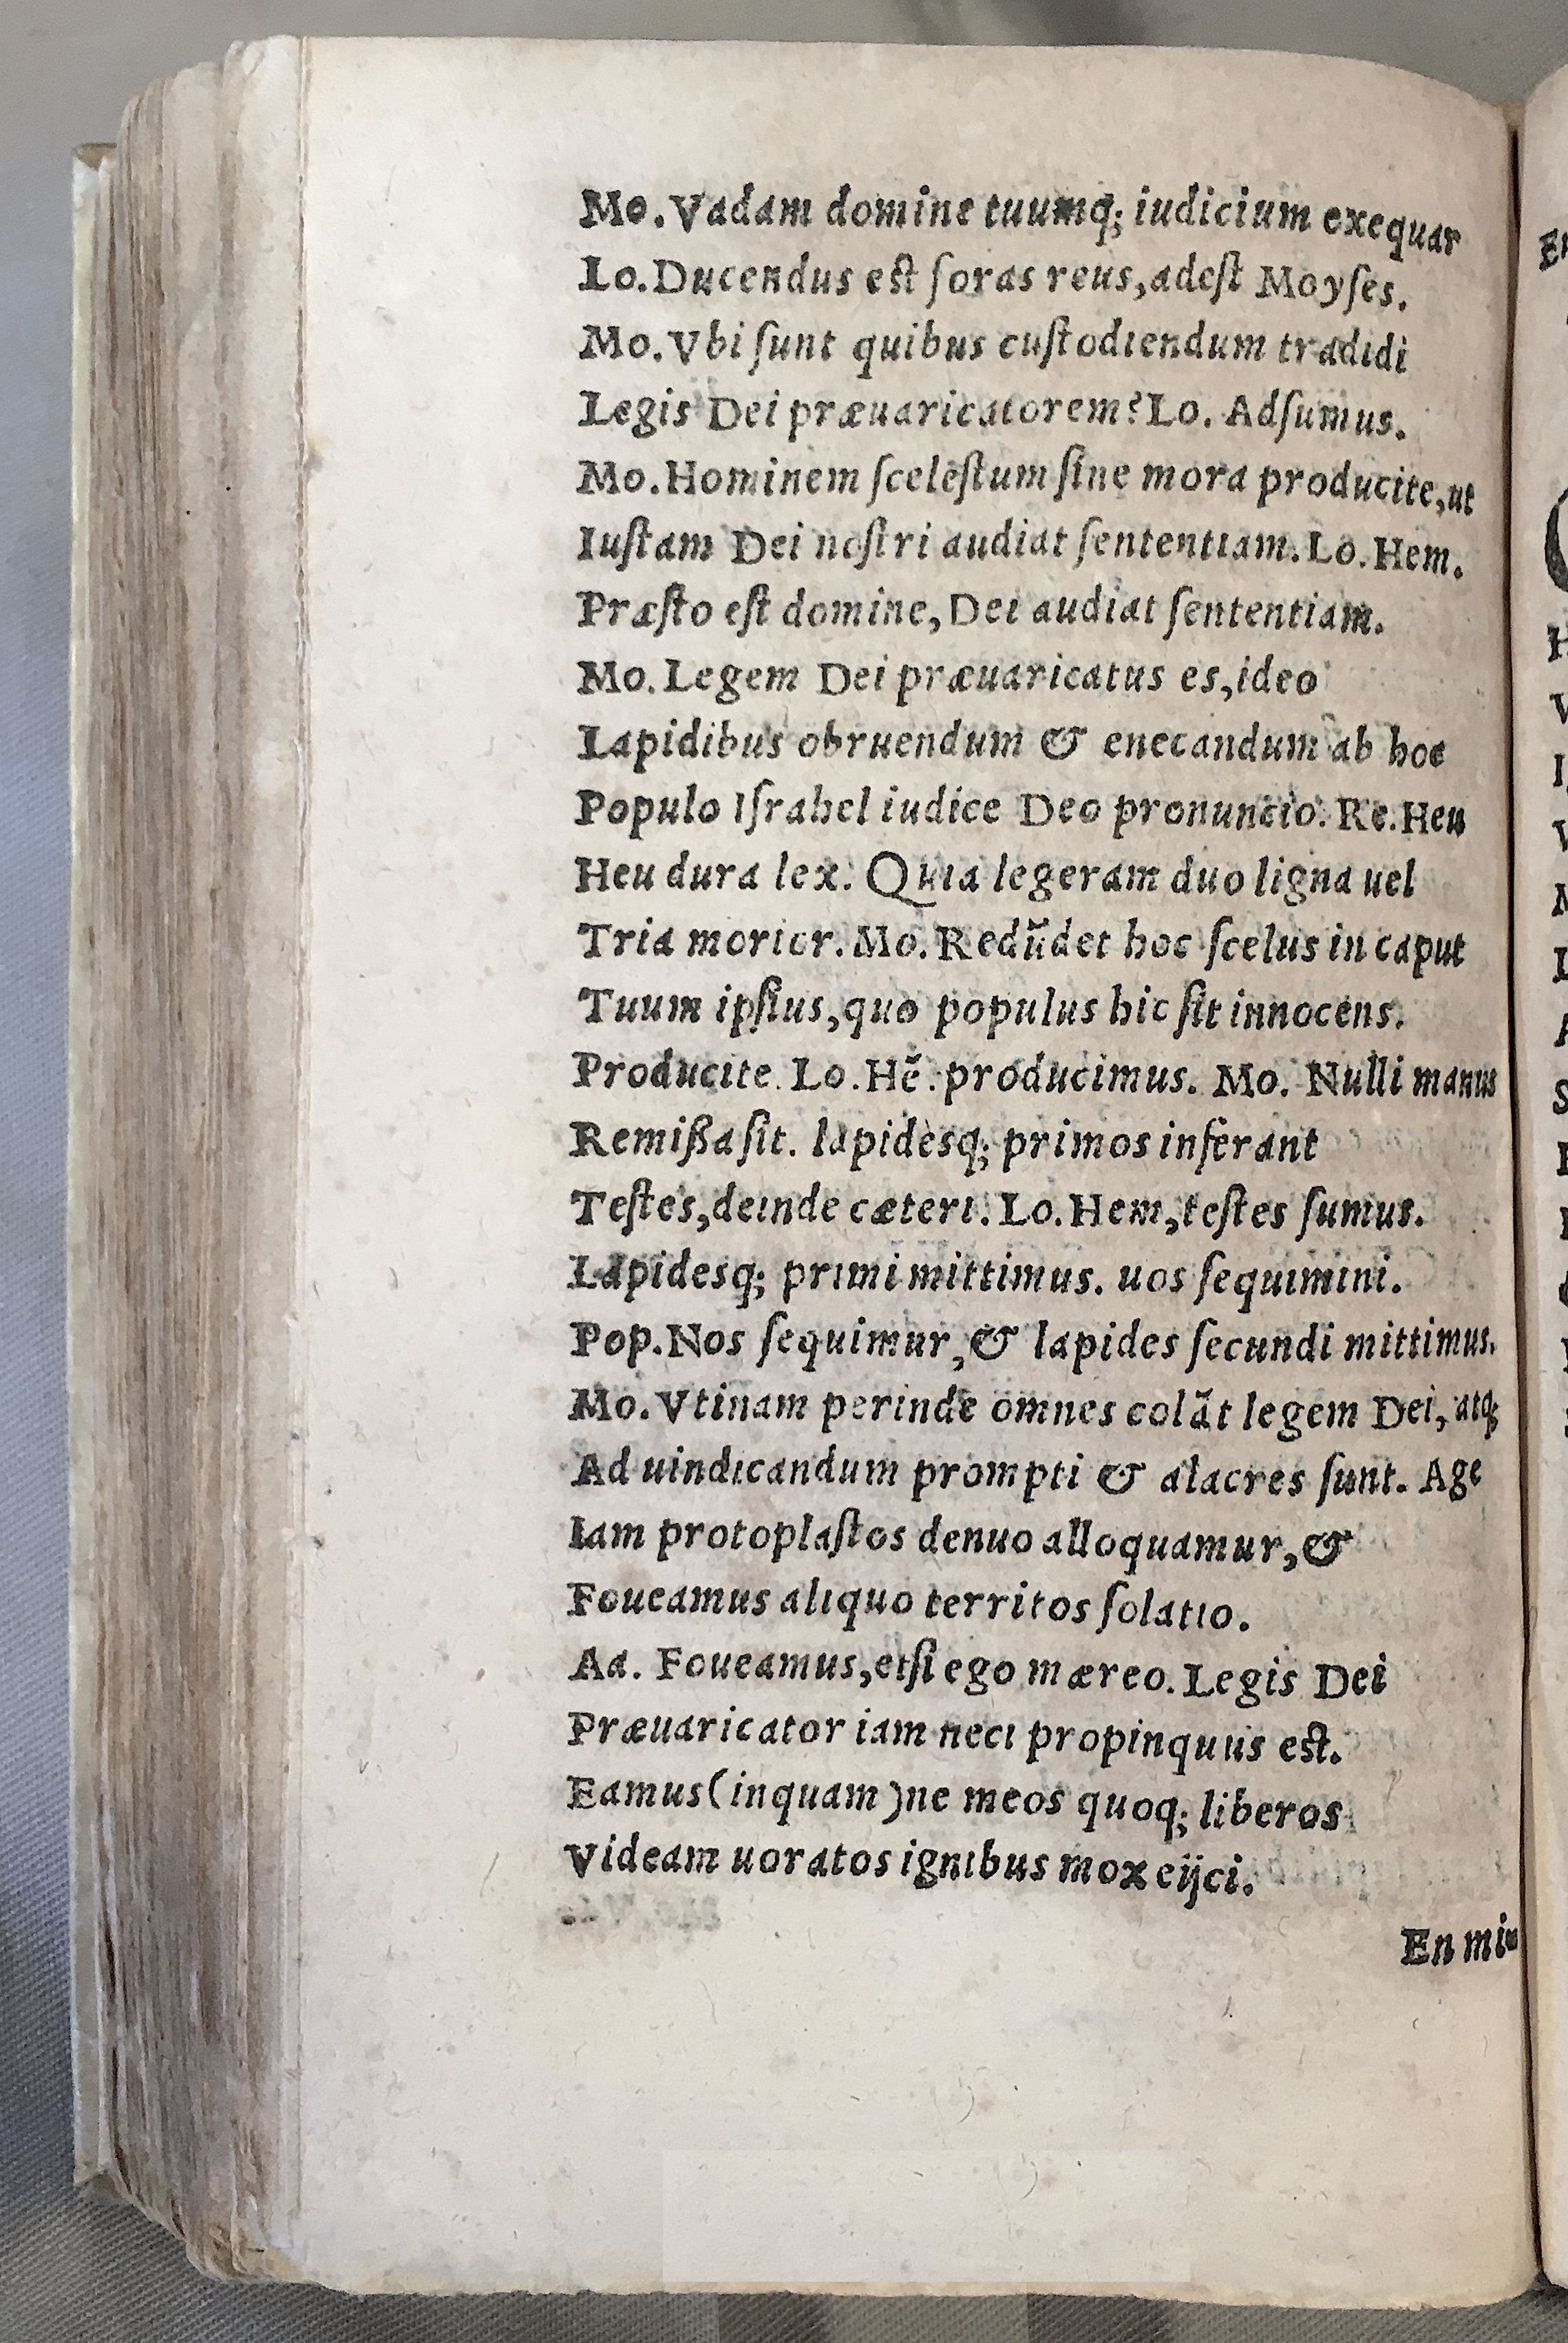 Mo. Vadam domine tuumq; iudicium exequar
Lo. Ducendus est foras reus, adeſt Moyſes.
Mo. Vbi ſunt quibus cuſtodiendum tradidi
Legis Dei præuaricatorem? Lo. Adſumus.
Mo. Hominem ſceleſtum ſine mora producite, ut
Iuſtam Dei noſtri audiat ſententiam. Lo. Hem.
Præſto eſt domine, Dei audiat ſententiam.
Mo. Legem Dei præuaricatus es, ideo
Lapidibus obruendum & enecandum ab hoc
Populo Iſrahel iudice Deo pronuncio. Re. Heu
Heu dura lex. Quia legeram duo ligna uel
Tria morior. Mo. Redūdet hoc ſcelus in caput
Tuum ipſius, quo populus hic ſit innocens.
Producite. Lo. Hē. producimus. Mo. Nulli manus
Remißa ſit. lapidesq; primos inferant
Teſtes, deinde cæteri. Lo. Hem, teſtes ſumus.
Lapidesq; primi mittimus. uos ſequimini.
Pop. Nos ſequimur, & lapides ſecundi mittimus.
Mo. Vtinam perinde omnes colāt legem Dei, atq;
Ad uindicandum prompti & alacres ſunt. Age
Iam protoplaſtos denuo alloquamur, &
Foueamus aliquo territos ſolatio.
Aa. Foueamus, etſi ego mæreo. Legis Dei
Præuaricator iam neci propinquus est.
Eamus (inquam) ne meos quoq; liberos
Videam uoratos ignibus mox eijci.
En mi